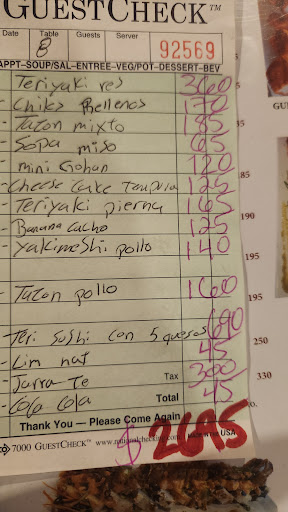 GUESTCHECK™
Date Table Guests Server
8 92569
APPT-SOUP/SAL-ENTREE-VEG/POT-DESSERT-BEV
- Teriyaki res 360
- Chiks Rellenos 170
- Tazon mixto 185
- Sopa miso 65
- mini Gohan 120
- Cheese Cake Tempura 125
- Teriyaki pierna 165
- Banana cacho 125
- Yakimeshi pollo 140
- Tazon pollo 160
- Teri Sushi con 5 quesos 690
- Lim nat 45
- Jarra Te Tax 300
- Coca Cola Total 45
Thank You — Please Come Again
7000 GUESTCHECK™ USA
$ 2695
185
190
195
195
250
330